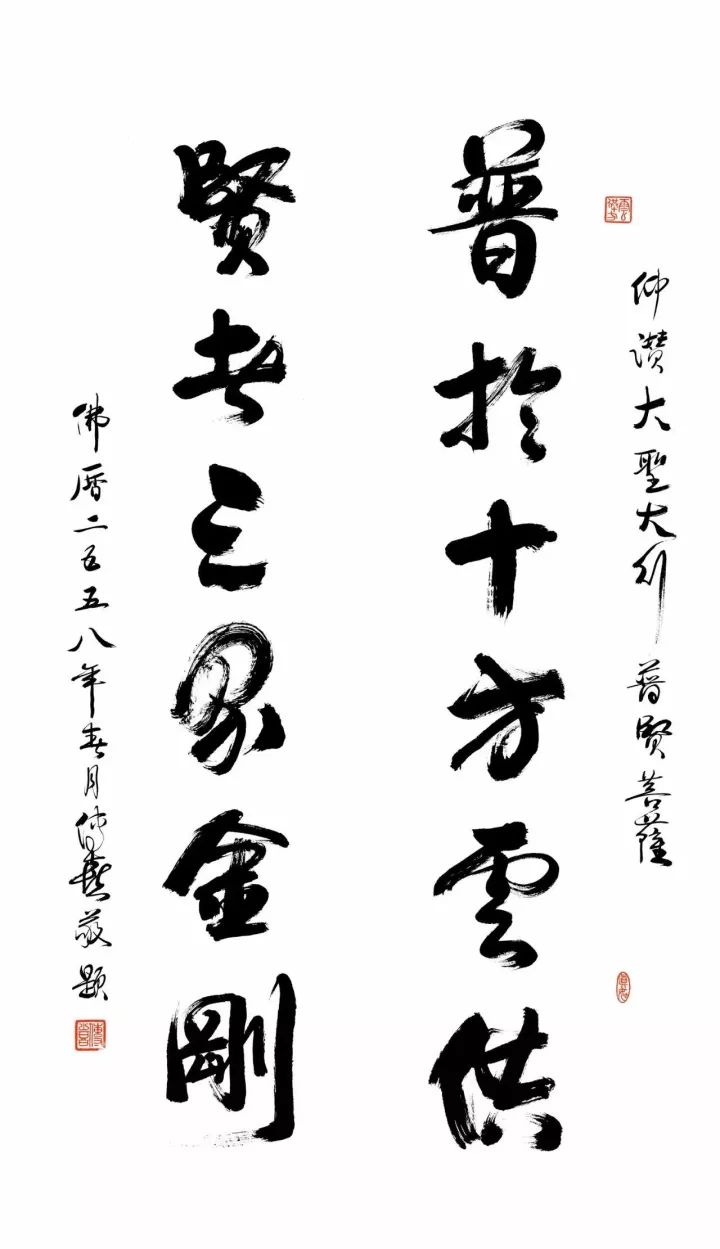 仰讚大聖大行普賢菩薩
普於十方雲供
賢者三界金剛
佛曆二五五八年春月傳喜敬題